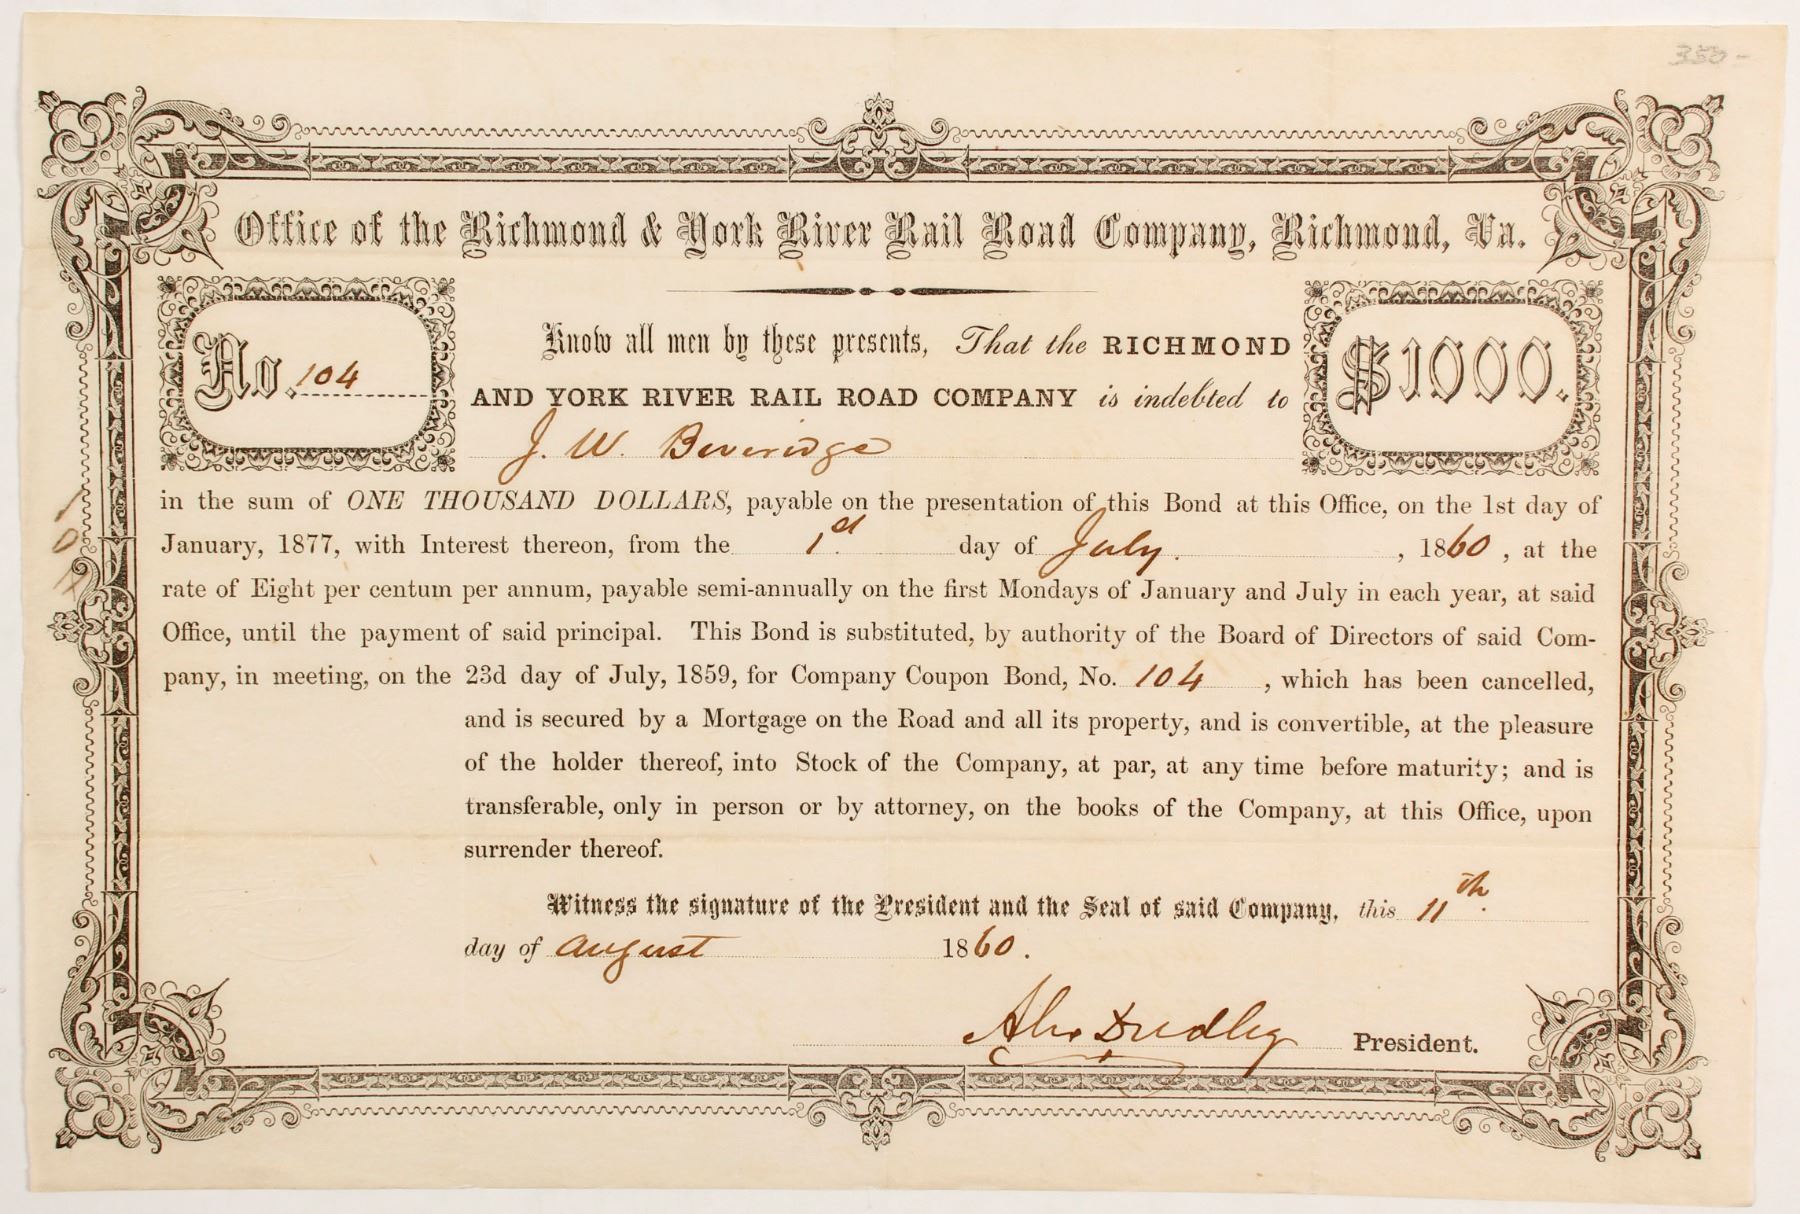 350-
Office of the Richmond & York River Rail Road Company, Richmond, Va.
No. 104
$1000.
Know all men by these presents, That the RICHMOND
AND YORK RIVER RAIL ROAD COMPANY is indebted to
J. W. Beveridge
in the sum of ONE THOUSAND DOLLARS, payable on the presentation of this Bond at this Office, on the 1st day of
January, 1877, with Interest thereon, from the 1st day of July. , 1860 , at the
rate of Eight per centum per annum, payable semi-annually on the first Mondays of January and July in each year, at said
Office, until the payment of said principal. This Bond is substituted, by authority of the Board of Directors of said Com-
pany, in meeting, on the 23d day of July, 1859, for Company Coupon Bond, No. 104 , which has been cancelled,
and is secured by a Mortgage on the Road and all its property, and is convertible, at the pleasure
of the holder thereof, into Stock of the Company, at par, at any time before maturity; and is
transferable, only in person or by attorney, on the books of the Company, at this Office, upon
surrender thereof.
Witness the signature of the President and the Seal of said Company, this 11th.
day of August 1860.
Alex Dudley President.
104